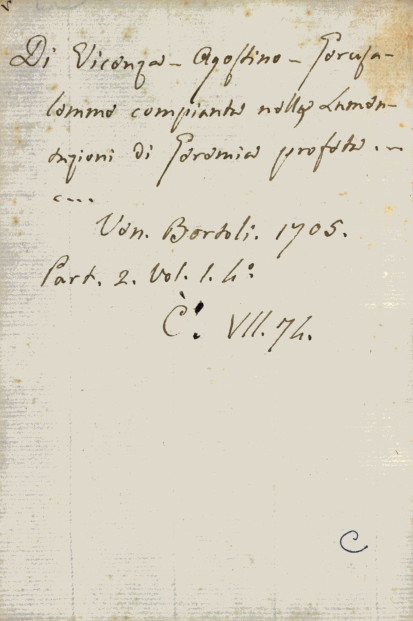 Di Vicenza - Agostino - Gerusa-
lemme compianta nelle Lamen-
tazioni di Geremia profeta ...
....
Ven. Bortoli. 1705.
Part. 2. Vol. 1. 4°
C. VII. 74.
C